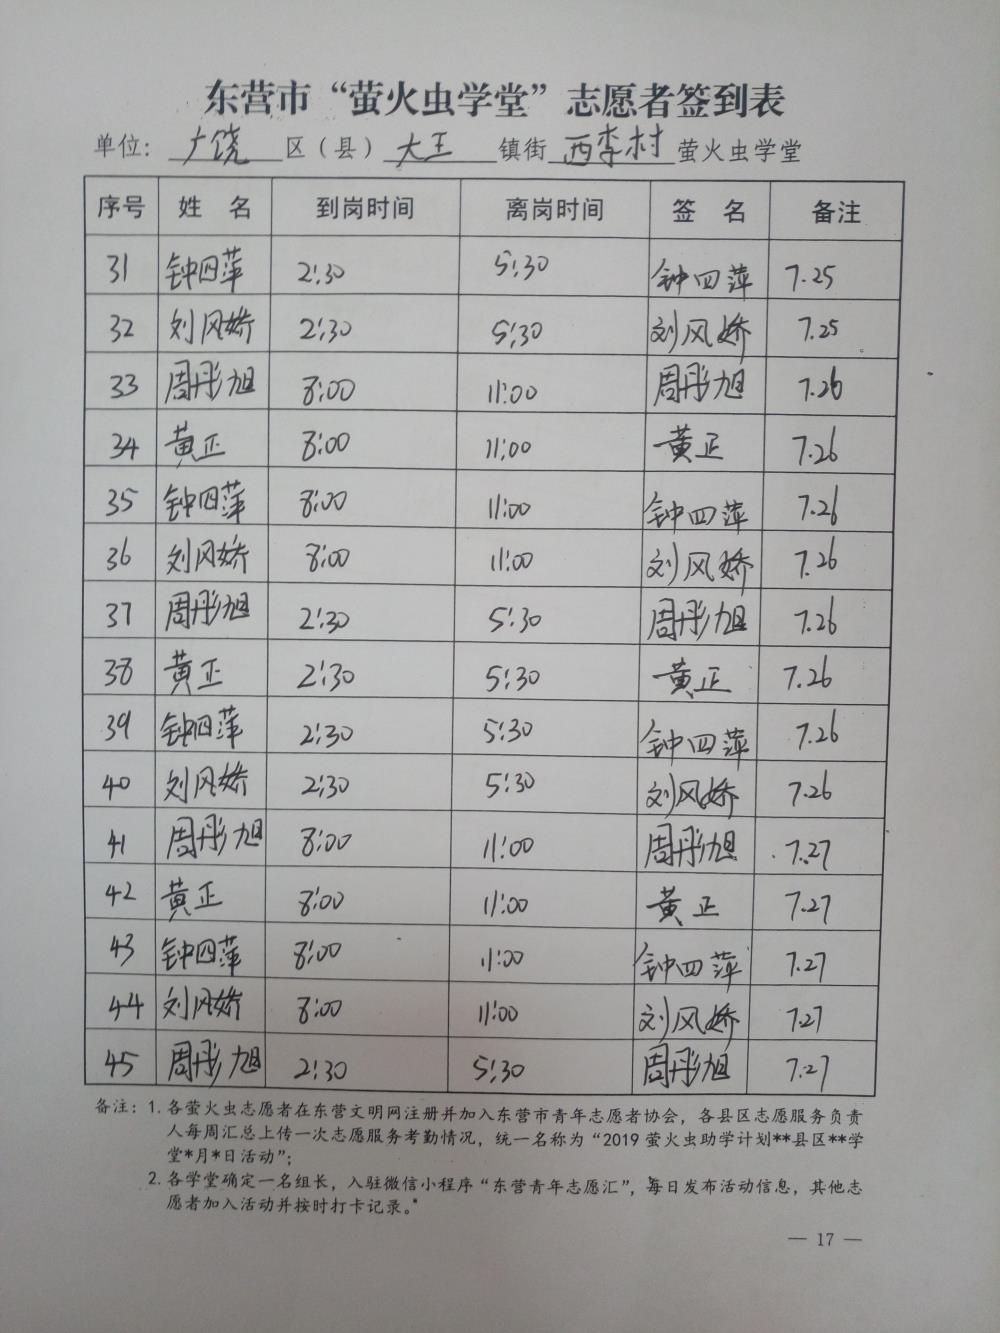 东营市“萤火虫学堂”志愿者签到表
单位：广饶区（县）大王镇街西李村萤火虫学堂
序号 姓 名 到岗时间 离岗时间 签 名 备注
31 钟四萍 2:30 5:30 钟四萍 7.25
32 刘风娇 2:30 5:30 刘风娇 7.25
33 周彤旭 8:00 11:00 周彤旭 7.26
34 黄正 8:00 11:00 黄正 7.26
35 钟四萍 8:00 11:00 钟四萍 7.26
36 刘风娇 8:00 11:00 刘风娇 7.26
37 周彤旭 2:30 5:30 周彤旭 7.26
38 黄正 2:30 5:30 黄正 7.26
39 钟四萍 2:30 5:30 钟四萍 7.26
40 刘风娇 2:30 5:30 刘风娇 7.26
41 周彤旭 8:00 11:00 周彤旭 7.27
42 黄正 8:00 11:00 黄正 7.27
43 钟四萍 8:00 11:00 钟四萍 7.27
44 刘风娇 8:00 11:00 刘风娇 7.27
45 周彤旭 2:30 5:30 周彤旭 7.27
备注：1. 各萤火虫志愿者在东营文明网注册并加入东营市青年志愿者协会，各县区志愿服务负责
人每周汇总上传一次志愿服务考勤情况，统一名称为“2019 萤火虫助学计划**县区**学
堂*月*日活动”；
2. 各学堂确定一名组长，入驻微信小程序“东营青年志愿汇”，每日发布活动信息，其他志
愿者加入活动并按时打卡记录。
— 17 —